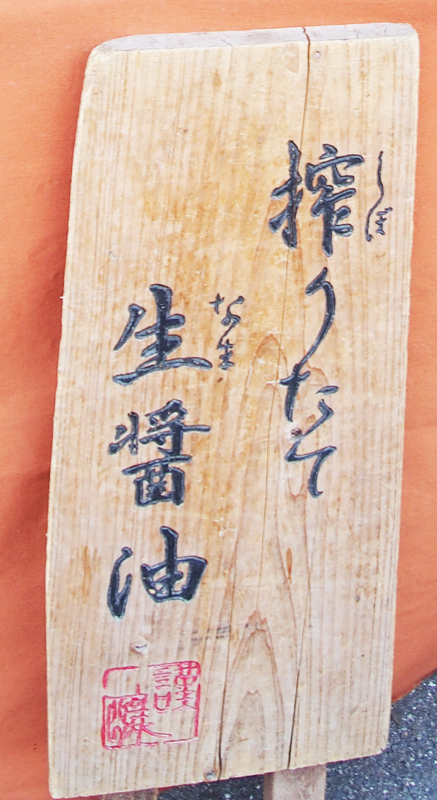 搾りたて
しぼ
生醤油
なま